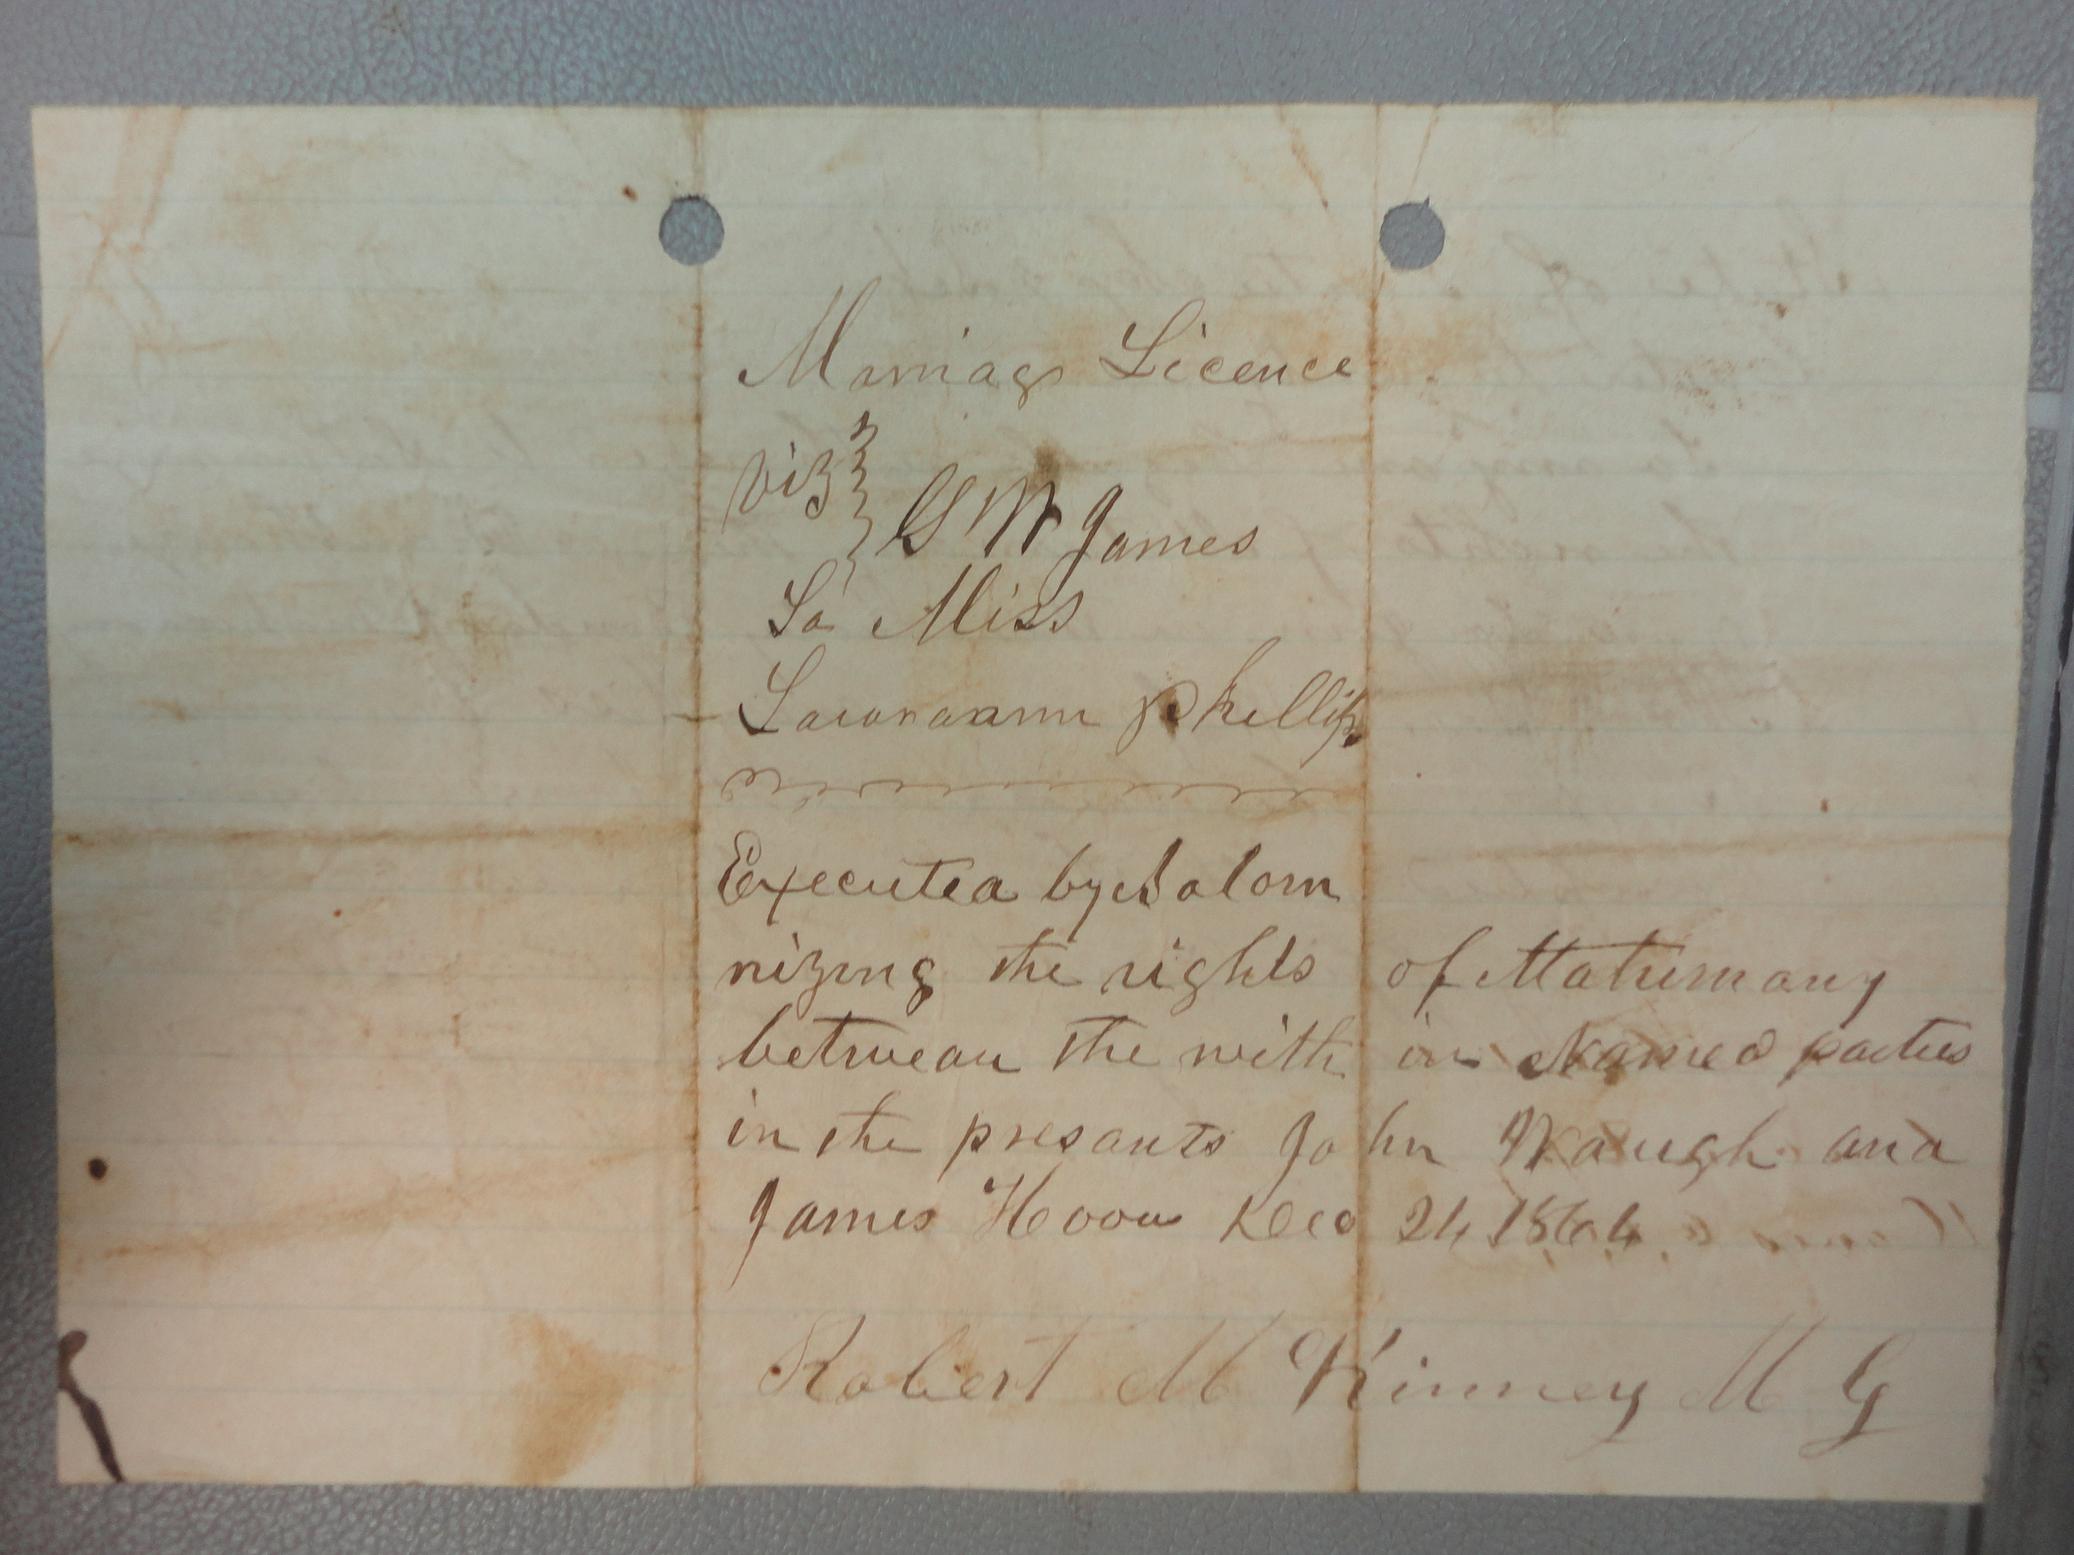 Marriage Licence
viz
G W James
To Miss
Lauraann Phillips
Executed by Solom
nizing the rights of Matrimony
between the with in Named parties
in the presants John Waugh and
James Hoover Dec 24 1864
Robert M Kinney M G